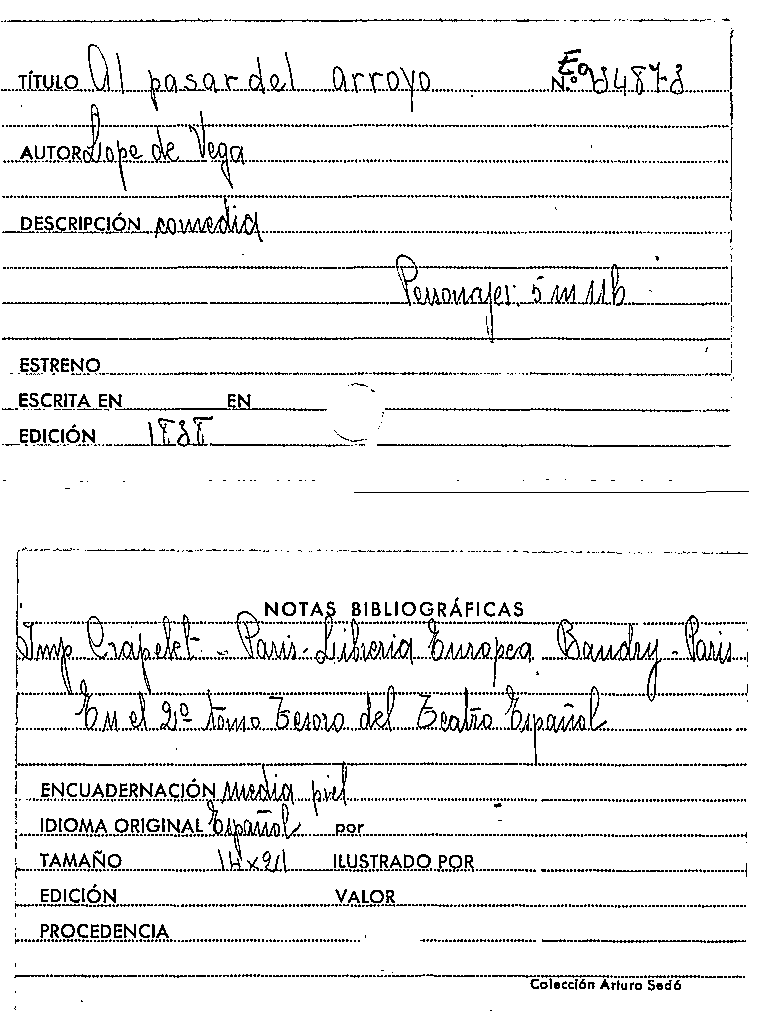 TÍTULO Al pasar del arroyo N.º
AUTOR Lope de Vega
DESCRIPCIÓN comedia
Personajes: 5 m 11 h
ESTRENO
ESCRITA EN EN
EDICIÓN 1838
NOTAS BIBLIOGRÁFICAS
Imp Crapelet - Paris - Libreria Europea Baudry - Paris
En el 2º tomo Tesoro del Teatro Español
ENCUADERNACIÓN media piel
IDIOMA ORIGINAL Español por
TAMAÑO 14x21 ILUSTRADO POR
EDICIÓN VALOR
PROCEDENCIA
Colección Arturo Sedó